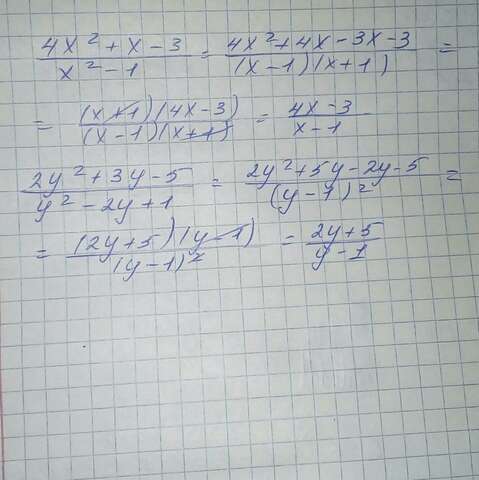 (4x² + x - 3)/(x² - 1) = (4x² + 4x - 3x - 3)/((x - 1)(x + 1)) =
= ((x + 1)(4x - 3))/((x - 1)(x + 1)) = (4x - 3)/(x - 1)
(2y² + 3y - 5)/(y² - 2y + 1) = (2y² + 5y - 2y - 5)/((y - 1)²) =
= ((2y + 5)(y - 1))/((y - 1)²) = (2y + 5)/(y - 1)